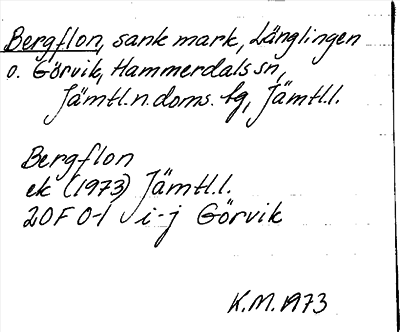 Bergflon, sank mark, Länglingen
o. Görvik, Hammerdals sn,
Jämtl. n. doms. tg, Jämtl. l.
Bergflon
ek (1973) Jämtl. l.
20F 0-1 i-j Görvik
K.M. 1973